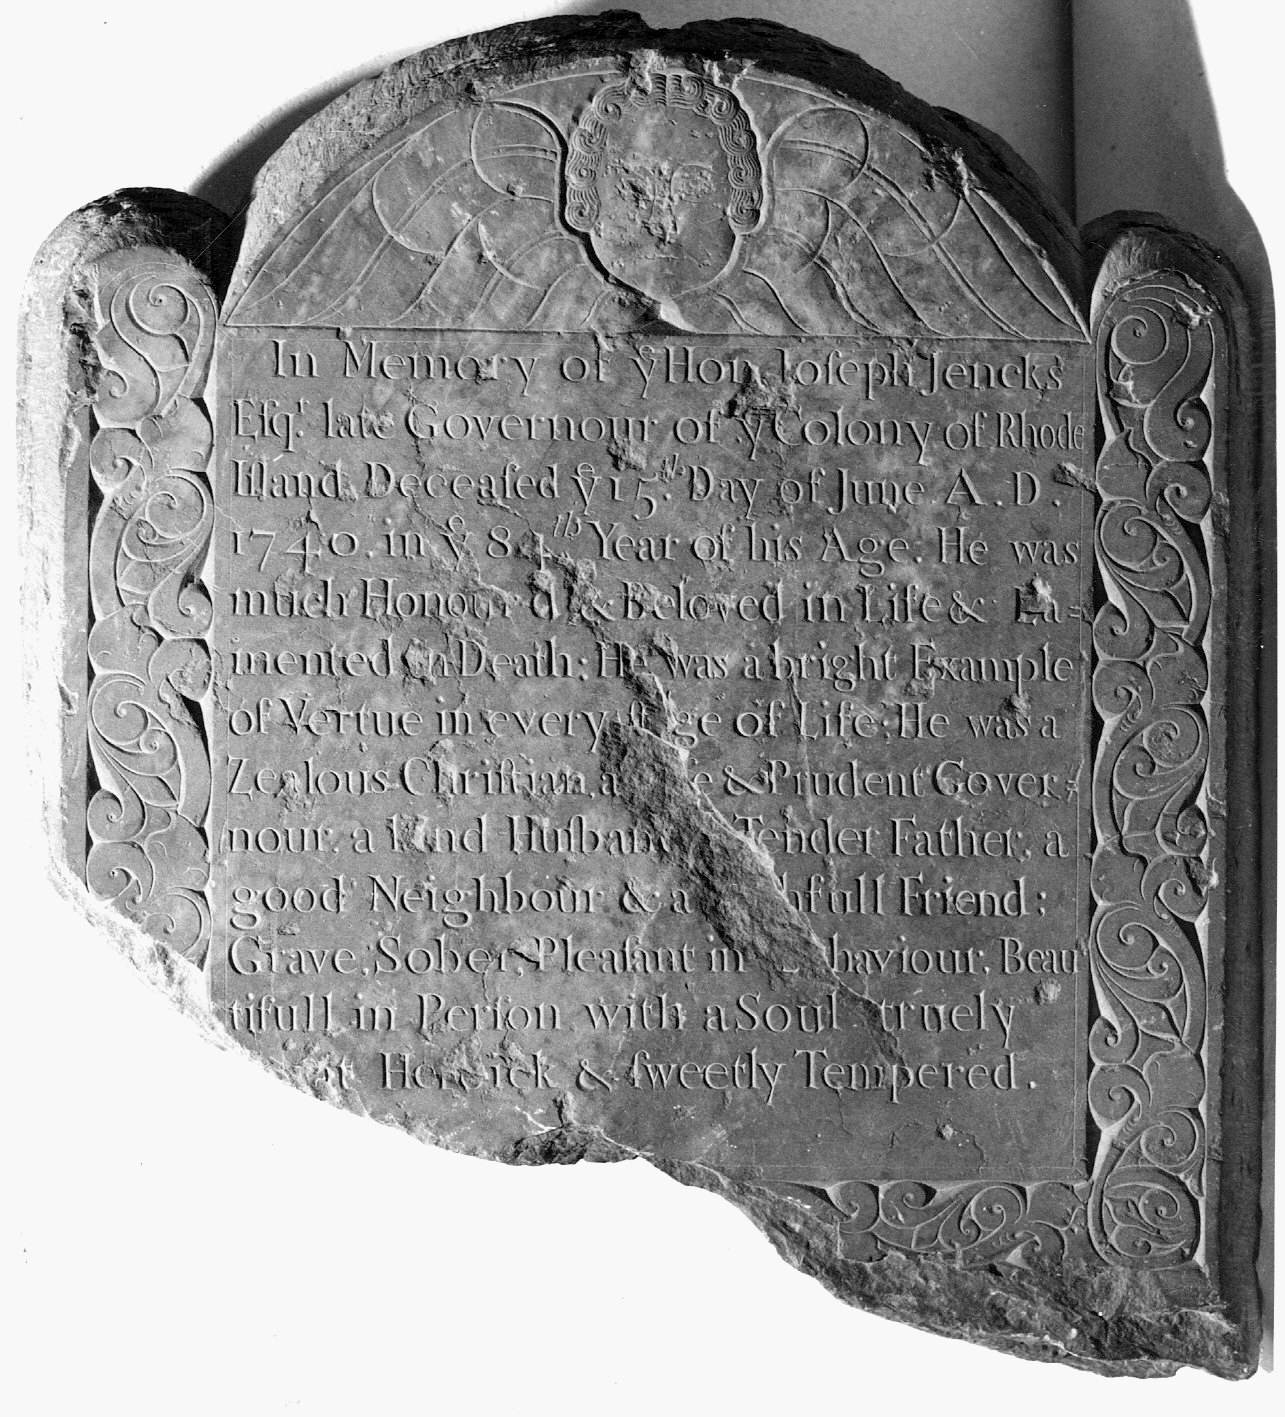 In Memory of yͤ Hon. Joſeph Jencks
Eſqʳ. late Governour of yͤ Colony of Rhode
Iſland, Deceaſed yͤ 15.ᵗʰ Day of June. A. D.
1740. in yͤ 84ᵗʰ Year of his Age. He was
much Honour'd & Beloved in Life & La=
mented in Death: He was a bright Example
of Vertue in every ſtage of Life: He was a
Zealous Chriſtian, a & Prudent Gover=
nour, a kind Huſband Tender Father, a
good Neighbour & a Friend;
Grave, Sober, Pleaſant in Behaviour, Beau
tifull in Perſon with a Soul truely
Heroick & ſweetly Tempered.